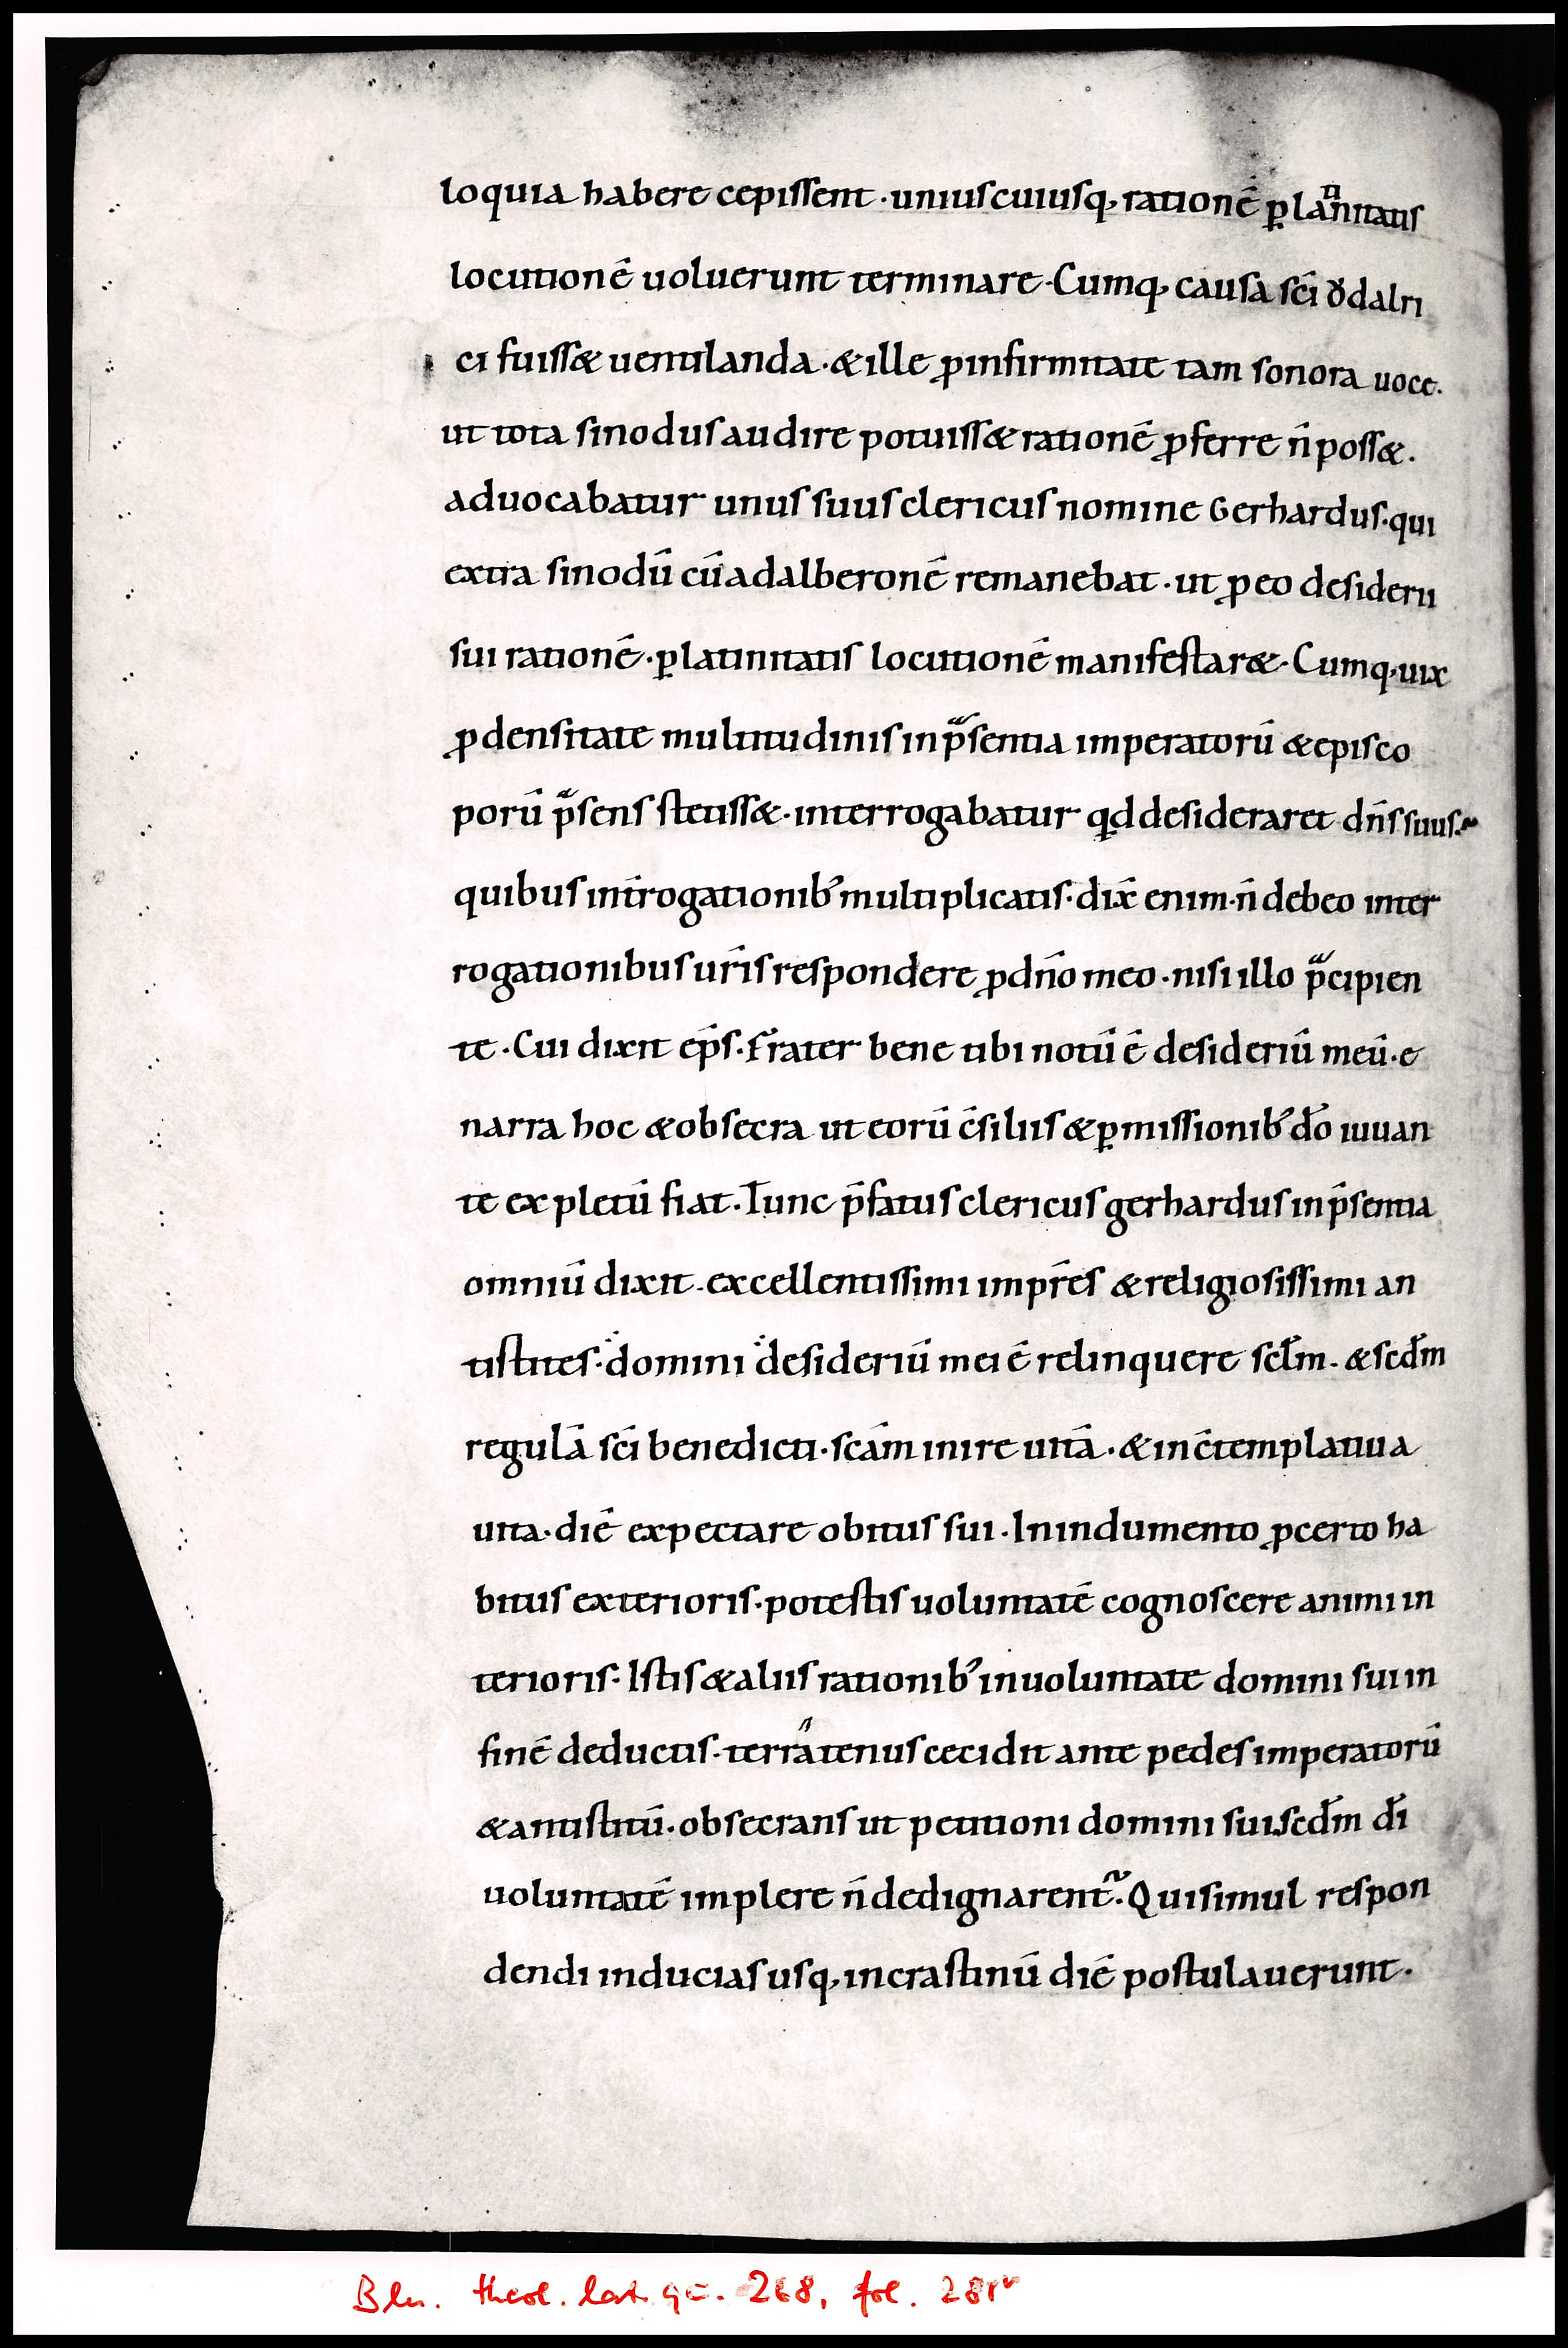 loquia habere cepissent · uniuscuiusq; rationē p̱ latinitatis
locutionē uoluerunt terminare · Cumq; causa scī ŏdalri
ci fuiss& uentilanda · & ille ꝓ infirmitate tam sonora uoce .
ut tota sinodus audire potuiss& rationē ꝓferre n̄ poss& .
aduocabatur unus suus clericus nomine Gerhardus · qui
extra sinodū cū adalberonē remanebat · ut ꝓ eo desiderii
sui rationē · ꝑ latinitatis locutionē manifestar& · Cumq; uix
ꝓ densitate multitudinis in p̄sentia imperatorū & episco
porū p̄sens stetiss& · interrogabatur qd desideraret dn̄s suus .
quibus int̄rogationib; multiplicatis · dix̄ enim · n̄ debeo inter
rogationibus ur̄is respondere ꝓ dn̄o meo · nisi illo p̄cipien
te · Cui dixit ep̄s · Frater bene tibi notū ē desideriū meū · e
narra hoc & obsecra ut eorū c̄siliis & ꝑmissionib; dō iuuan
te expletū fiat · Tunc p̄fatus clericus gerhardus in p̄sentia
omniū dixit · excellentissimi impr̄es & religiosissimi an
tistites · domini desideriū mei ē relinquere scl̄m · & scdm̄
regulā scī benedicti · scām inire uitā · & in c̄templatiua
uita · diē expectare obitus sui · In indumento ꝓcerto ha
bitus exterioris · potestis uoluntatē cognoscere animi in
terioris · Istis & aliis rationib; in uoluntate domini sui in
finē deductis · terratenus cecidit ante pedes imperatorū
& antistitū · obsecrans ut petitioni domini sui scdm̄ dī
uoluntatē implere n̄ dedignarent᷑ · Qui simul respon
dendi inducias usq; in crastinū diē postulauerunt ·
Bln. theol. lat. qu. 268, fol. 281v